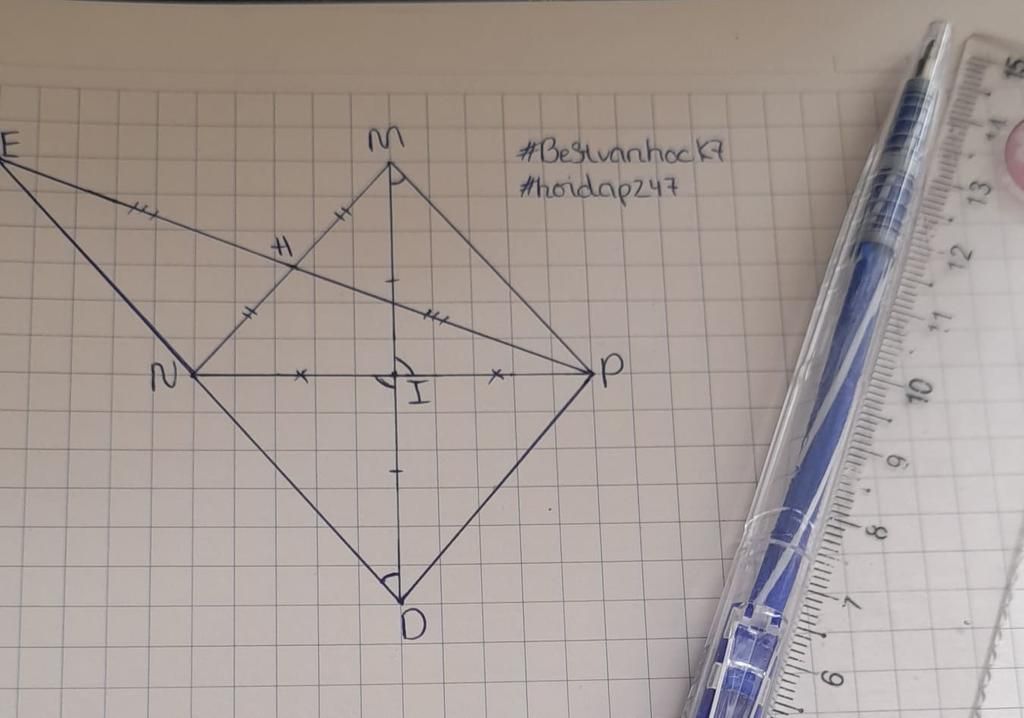 E
M
#Bestvanhock7
#hoidap247
H
N
I
P
D
15
14
13
12
11
10
9
8
7
6